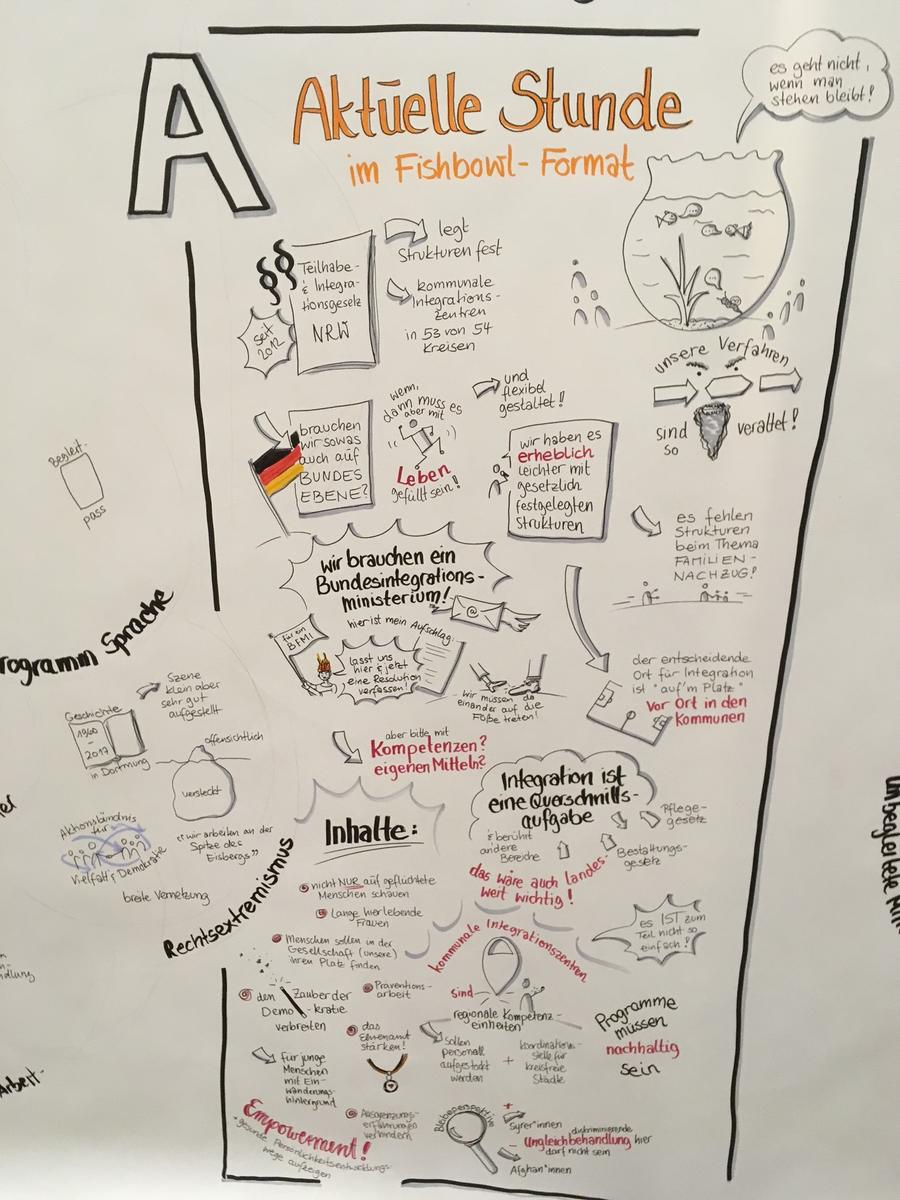 A
Aktuelle Stunde
im Fishbowl-Format
es geht nicht,
wenn man
stehen bleibt!
§§
Teilhabe-
& Integra-
tionsgesetz
NRW
seit
2012
legt
Strukturen fest
kommunale
Integrations-
zentren
in 53 von 54
Kreisen
unsere Verfahren
sind
so
veraltet!
brauchen
wir sowas
auch auf
BUNDES
EBENE?
wenn,
dann muss es
aber mit
Leben
gefüllt sein!
und
flexibel
gestaltet!
wir haben es
erheblich
leichter mit
gesetzlich
festgelegten
Strukturen
es fehlen
Strukturen
beim Thema
FAMILIEN-
NACHZUG!
wir brauchen ein
Bundesintegrations-
ministerium!
hier ist mein Aufschlag:
für ein
BFMI
lasst uns
hier & jetzt
eine Resolution
verfassen!
wir müssen da
einander auf die
Füße treten!
der entscheidende
Ort für Integration
ist "auf'm Platz"
Vor Ort in den
Kommunen
aber bitte mit
Kompetenzen?
eigenen Mitteln?
Integration ist
eine Querschnitts-
aufgabe
& berührt
andere
Bereiche
Pflege-
gesetz
Bestattungs-
gesetz
das wäre auch landes-
weit wichtig!
es IST zum
Teil nicht so
einfach!
Inhalte:
nicht NUR auf geflüchtete
Menschen schauen
Lange hier lebende
Frauen
Menschen sollen in der
Gesellschaft (unsere)
ihren Platz finden
den Zauber der
Demokratie
verbreiten
Präventions-
arbeit
das
Ehrenamt
stärken!
für junge
Menschen
mit Ein-
wanderungs-
hintergrund
Empowerment!
gesunde Persönlichkeitsentwicklungs-
wege aufzeigen
Ausgrenzungs-
erfahrungen
verhindern
kommunale Integrationszentren
sind
regionale Kompetenz-
einheiten
sollen
personell
aufgestockt
werden
+
koordinations-
stelle für
kreisfreie
Städte
Programme
müssen
nachhaltig
sein
Bleibeperspektive
+
Syrer*innen
diskriminierende
Ungleichbehandlung hier
darf nicht sein
-
Afghan*innen
Begleit-
pass
rogramm Sprache
Szene
klein aber
sehr gut
aufgestellt
Geschichte
1960
-
2017
in Dortmung
offensichtlich
versteckt
"wir arbeiten an der
Spitze des
Eisbergs"
Aktionsbündnis
für
Vielfalt & Demokratie
breite Vernetzung
Rechtsextremismus
er
dlung
Arbeit-
unbegleitete Min